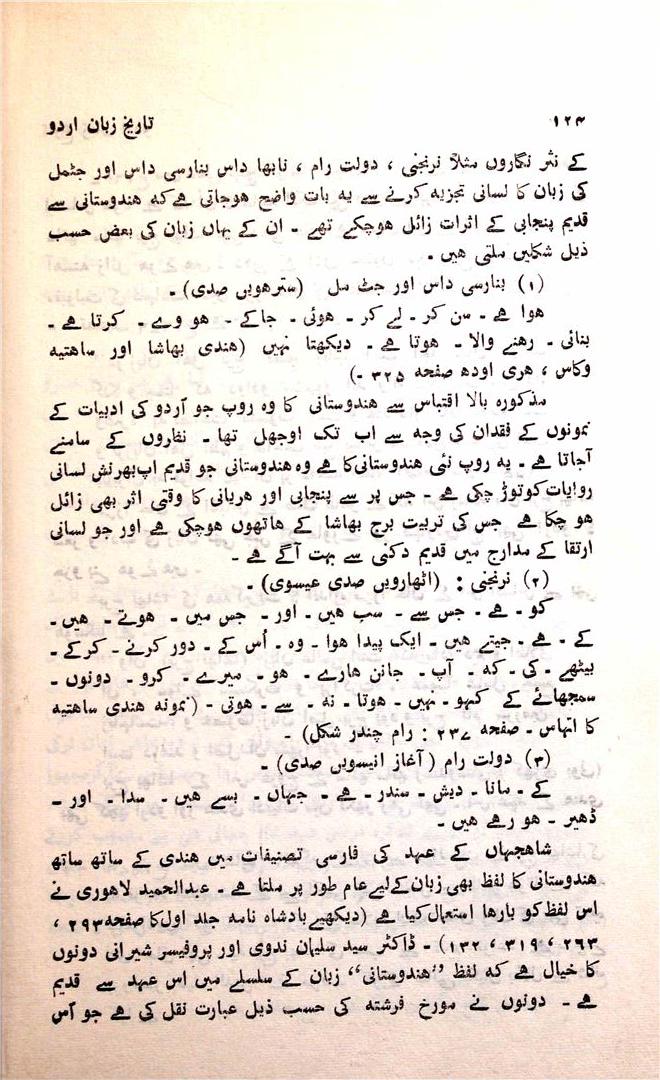 ۱۲۴ تاریخ زبان اردو
کے نثر نگاروں مثلاً نرنجنی ، دولت رام ، نابھا داس بنارسی داس اور جٹمل
کی زبان کا لسانی تجزیہ کرنے سے یہ بات واضح ہوجاتی ہے کہ ہندوستانی سے
قدیم پنجابی کے اثرات زائل ہوچکے تھے ۔ ان کے یہاں زبان کی بعض حسب
ذیل شکلیں ملتی ہیں ۔
(۱) بنارسی داس اور جٹ مل (سترھویں صدی) ۔
ہوا ہے ۔ سن کر ۔ لیے کر ۔ ہوئی ۔ جاکے ۔ ہو وے ۔ کرتا ہے ۔
بنائی ۔ رہنے والا ۔ ہوتا ہے ۔ دیکھتا نہیں (ہندی بھاشا اور ساہتیہ
وکاس ، ہری اودھ صفحہ ۳۲۵ ۔)
مذکورہ بالا اقتباس سے ہندوستانی کا وہ روپ جو اُردو کی ادبیات کے
نمونوں کے فقدان کی وجہ سے اب تک اوجھل تھا ۔ نظروں کے سامنے
آجاتا ہے ۔ یہ روپ نئی ہندوستانی کا ہے وہ ہندوستانی جو قدیم اپ بھرنش لسانی
روایات کو توڑ چکی ہے ۔ جس پر سے پنجابی اور ہریانی کا وقتی اثر بھی زائل
ہو چکا ہے جس کی تربیت برج بھاشا کے ہاتھوں ہوچکی ہے اور جو لسانی
ارتقا کے مدارج میں قدیم دکنی سے بہت آگے ہے ۔
(۲) نرنجنی : (اٹھارویں صدی عیسوی) ۔
کو ۔ ہے ۔ جس سے ۔ سب ہیں ۔ اور ۔ جس میں ۔ ہوتے ۔ ہیں ۔
کے ۔ ہے ۔ جیتے ہیں ۔ ایک پیدا ہوا ۔ وہ ۔ اُس کے ۔ دور کرنے ۔ کرکے ۔
بیٹھے ۔ کی ۔ کہ ۔ آپ ۔ جانن ہارے ۔ ہو ۔ میرے ۔ کرو ۔ دونوں ۔
سمجھائے کے کہو ۔ نہیں ۔ ہوتا ۔ نہ ۔ سے ۔ ہوتی ۔ (نمونہ ہندی ساہتیہ
کا اتہاس ۔ صفحہ ۲۳۷ : رام چندر شکل) ۔
(۳) دولت رام (آغاز انیسویں صدی) ۔
کے ۔ مانا ۔ دیش ۔ سندر ۔ ہے ۔ جہاں ۔ بسے ہیں ۔ سدا ۔ اور ۔
ڈھیر ۔ ہو رہے ہیں ۔
شاہجہاں کے عہد کی فارسی تصنیفات میں ہندی کے ساتھ ساتھ
ہندوستانی کا لفظ بھی زبان کے لیے عام طور پر ملتا ہے ۔ عبدالحمید لاہوری نے
اس لفظ کو بارہا استعمال کیا ہے (دیکھیے بادشاہ نامہ جلد اول کا صفحہ ۲۹۳ ،
۲۶۳ ، ۳۱۹ ، ۱۳۲) ۔ ڈاکٹر سید سلیمان ندوی اور پروفیسر شیرانی دونوں
کا خیال ہے کہ لفظ ’’ہندوستانی‘‘ زبان کے سلسلے میں اس عہد سے قدیم
ہے ۔ دونوں نے مورخ فرشتہ کی حسب ذیل عبارت نقل کی ہے جو اُس